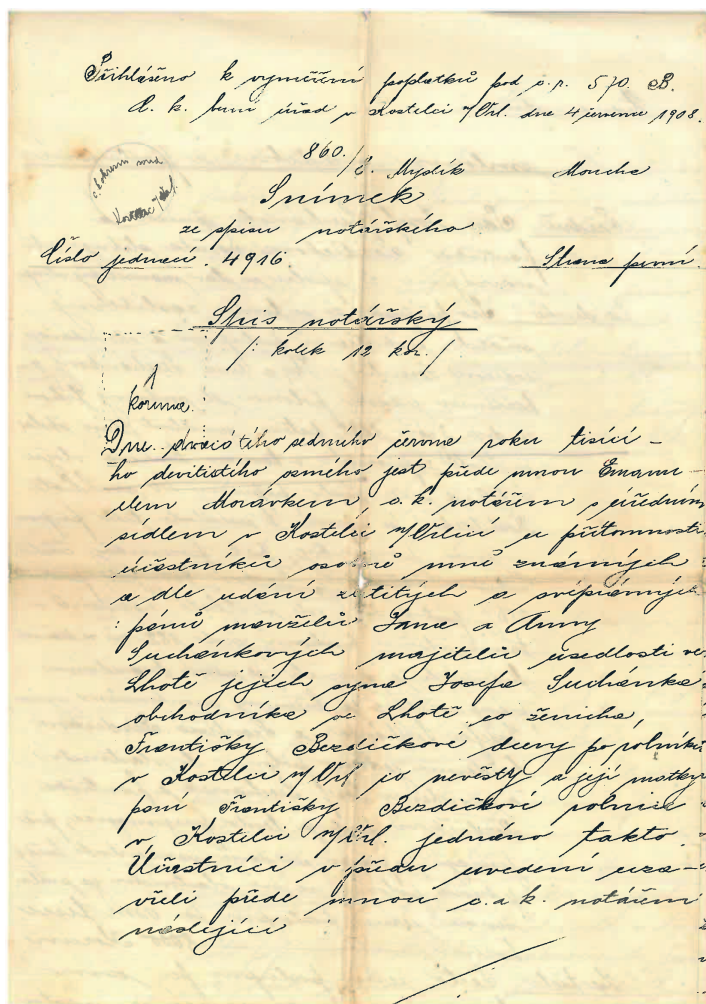 Přihlášeno k vyměření poplatků pod č. p. 570. B.
C. k. berní úřad v Kostelci n/Orl. dne 4 června 1908.
860./ Mydlík Moucha
Snímek
ze spisu notářského.
Číslo jednací. 4916. Strana první.
Spis notářský
/: kolek 12 kor. /.
1
koruna.
Dne dvacátého sedmého června roku tisící-
ho devítistého osmého jest přede mnou Emanu-
elem Morávkem, c. k. notářem s úředním
sídlem v Kostelci n/Orlicí za přítomnosti
účastníků osobně mně známých
a dle udání zletilých a svéprávných
: pánů manželů Jana a Anny
Suchánkových majitelů usedlosti ve
Lhotě jejich syna Josefa Suchánka
obchodníka ve Lhotě co ženicha,
Františky Bezdíčkové dcery po rolníku
v Kostelci n/Orl co nevěsty a její matky
paní Františky Bezdíčkové rolnice
v Kostelci n/Orl. jednáno takto.
Účastníci v předu uvedení uza-
vřeli přede mnou c. a k. notářem
náslející :